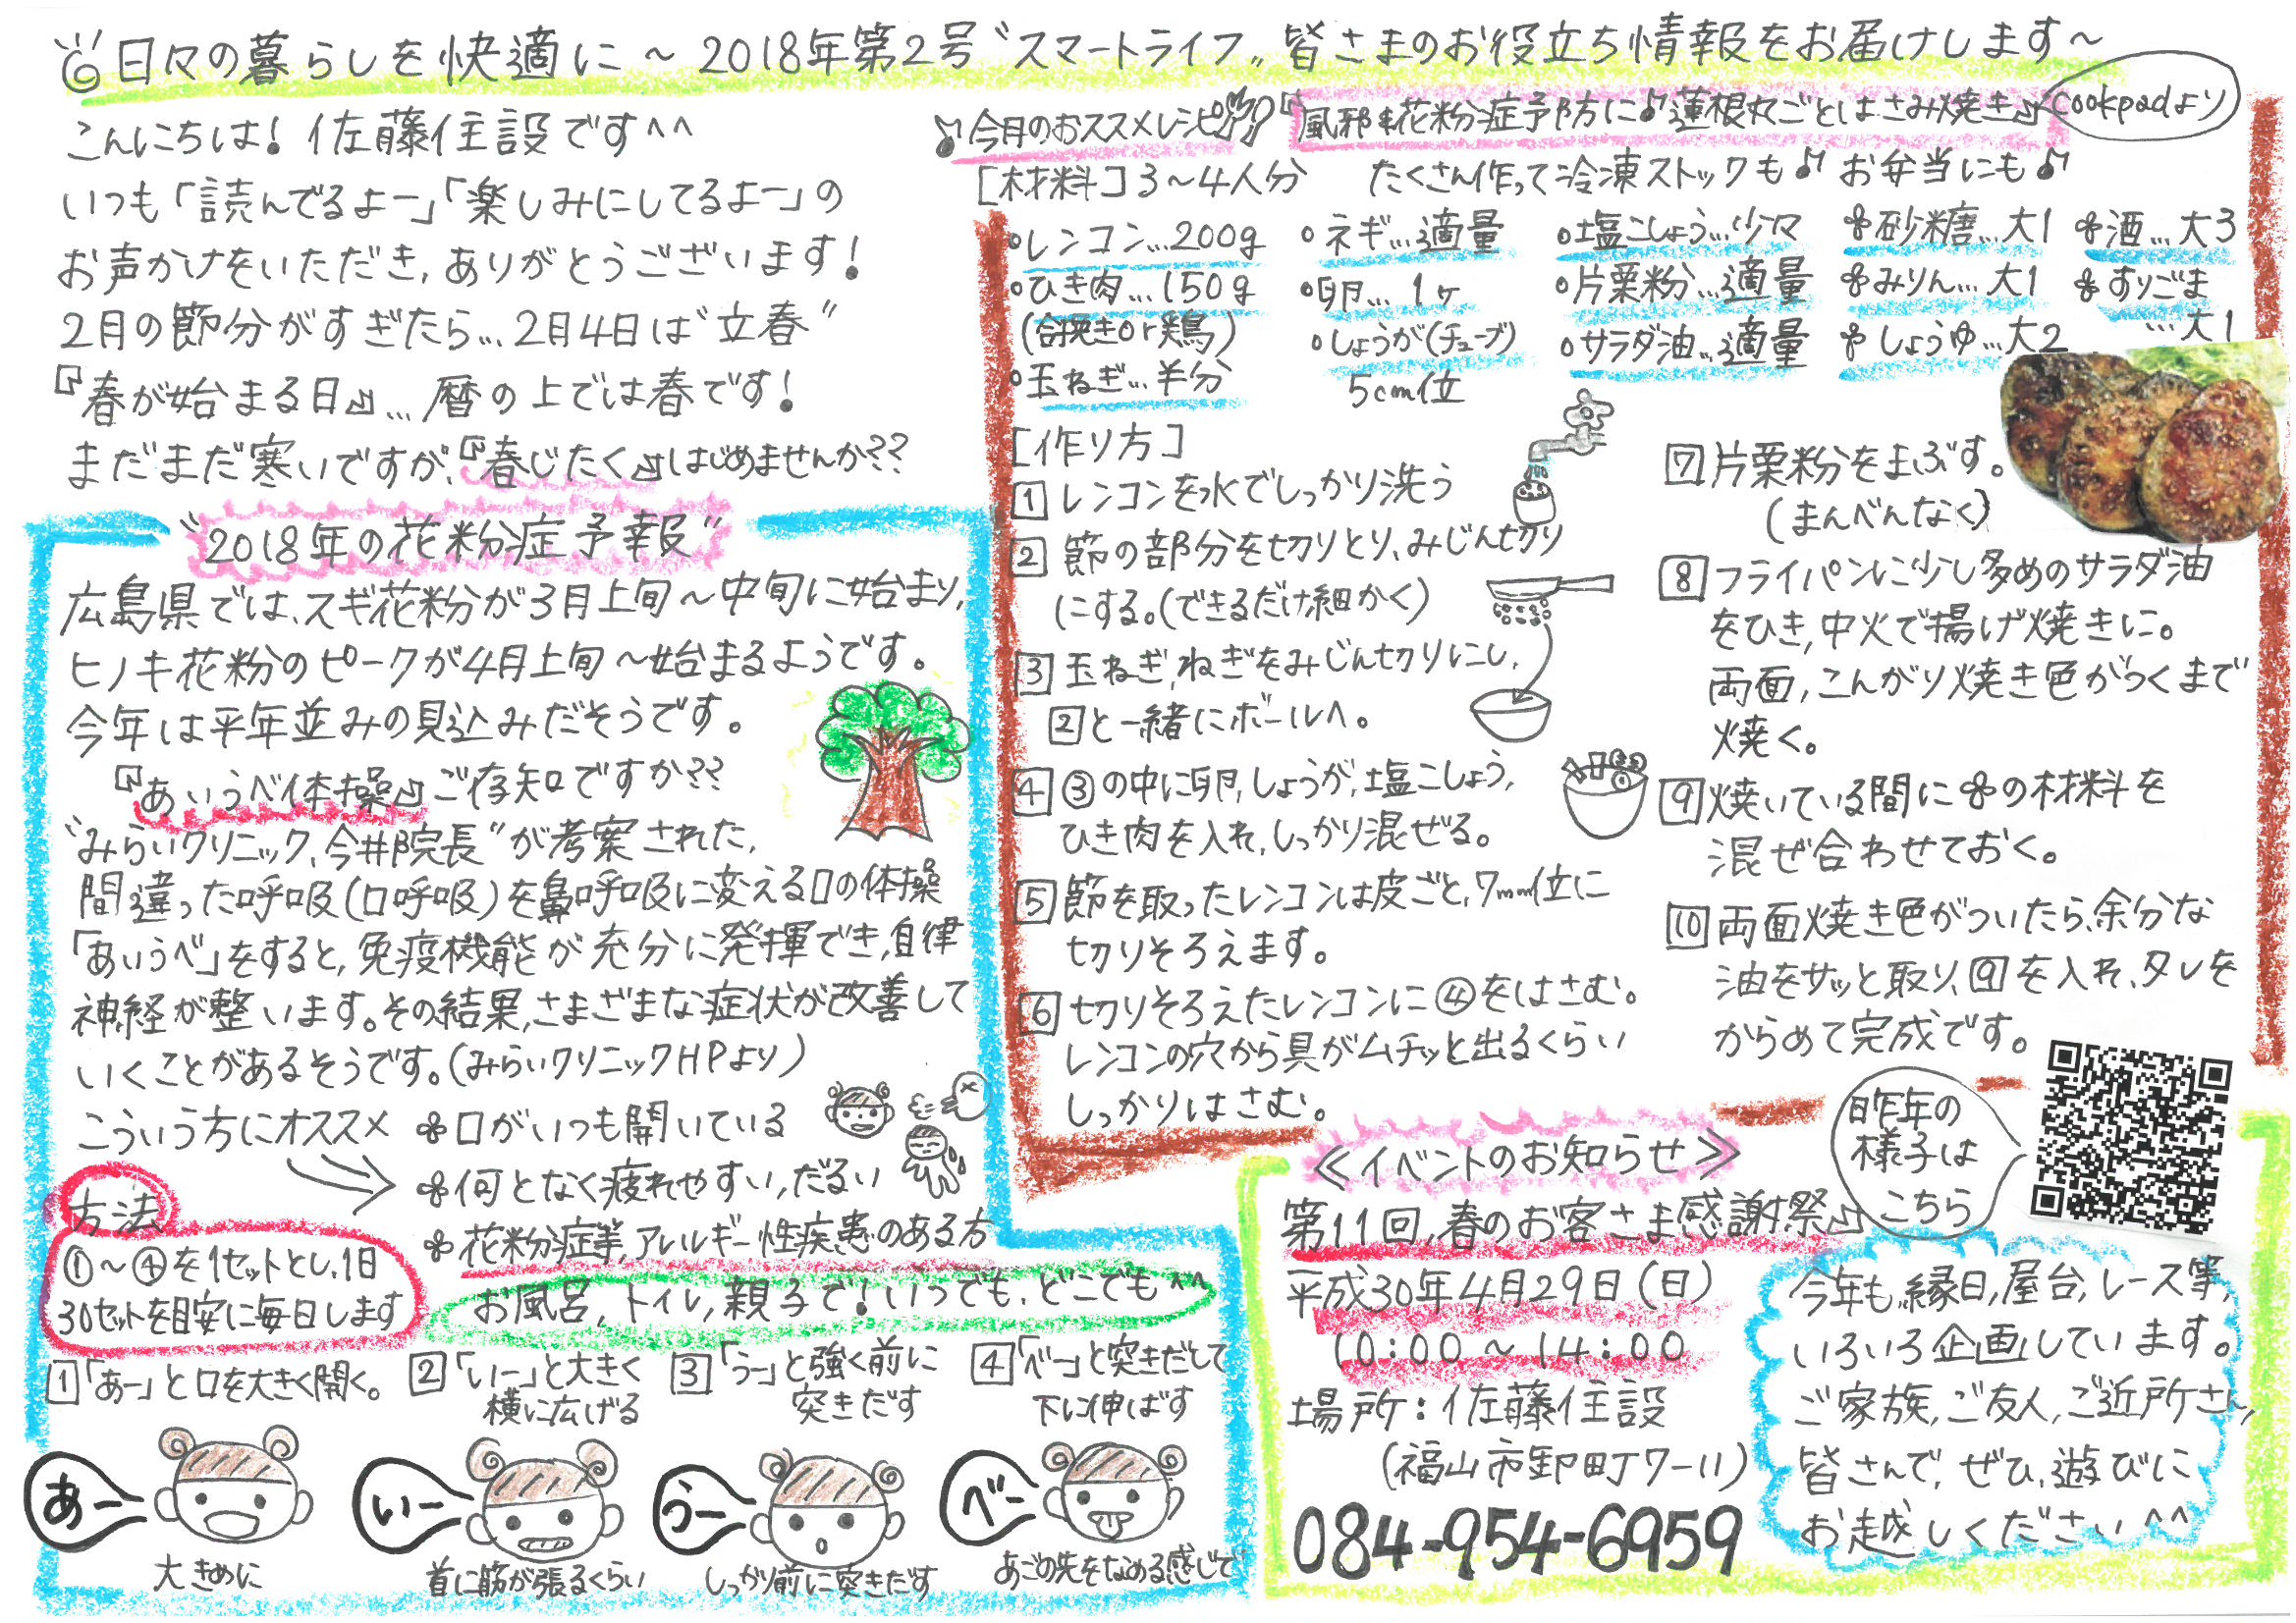 日々の暮らしを快適に～2018年第2号〝スマートライフ〟皆さまのお役立ち情報をお届けします～
こんにちは！佐藤住設です^^
いつも「読んでるよー」「楽しみにしてるよー」の
お声かけをいただき、ありがとうございます！
2月の節分がすぎたら…2月4日は〝立春〟
『春が始まる日』…暦の上では春です！
まだまだ寒いですが、『春じたく』はじめませんか??
〝2018年の花粉症予報〟
広島県では、スギ花粉が3月上旬～中旬に始まり、
ヒノキ花粉のピークが4月上旬～始まるようです。
今年は平年並みの見込みだそうです。
『あいうべ体操』ご存知ですか??
〝みらいクリニック、今井院長〟が考案された、
間違った呼吸(口呼吸)を鼻呼吸に変える口の体操
「あいうべ」をすると、免疫機能が充分に発揮でき、自律
神経が整います。その結果、さまざまな症状が改善して
いくことがあるそうです。(みらいクリニックHPより)
こういう方にオススメ
口がいつも開いている
何となく疲れやすい、だるい
花粉症等、アレルギー性疾患のある方
方法
①～④を1セットとし、1日
30セットを目安に毎日します
お風呂、トイレ、親子で！いつでも、どこでも^^
1「あー」と口を大きく開く。
2「いー」と大きく
横に広げる
3「うー」と強く前に
突きだす
4「べー」と突きだして
下に伸ばす
あー
いー
うー
べー
大きめに
首に筋が張るくらい
しっかり前に突きだす
あごの先をなめる感じで
♪今月のおススメレシピ『風邪&花粉症予防に♪蓮根丸ごとはさみ焼き』cookpadより
[材料]3～4人分 たくさん作って冷凍ストックも♪お弁当にも♪
・レンコン…200g
・ひき肉…150g
(合挽きor鶏)
・玉ねぎ…半分
・ネギ…適量
・卵…1ヶ
・しょうが(チューブ)
5cm位
・塩こしょう…少々
・片栗粉…適量
・サラダ油…適量
砂糖…大1
みりん…大1
しょうゆ…大2
酒…大3
すりごま
…大1
[作り方]
1 レンコンを水でしっかり洗う
2 節の部分を切りとり、みじん切り
にする。(できるだけ細かく)
3 玉ねぎ、ねぎをみじん切りにし、
2と一緒にボールへ。
4 ③の中に卵、しょうが、塩こしょう、
ひき肉を入れ、しっかり混ぜる。
5 節を取ったレンコンは皮ごと、7mm位に
切りそろえます。
6 切りそろえたレンコンに④をはさむ。
レンコンの穴から具がムチッと出るくらい
しっかりはさむ。
7 片栗粉をまぶす。
(まんべんなく)
8 フライパンに少し多めのサラダ油
をひき、中火で揚げ焼きに。
両面、こんがり焼き色がつくまで
焼く。
9 焼いている間に の材料を
混ぜ合わせておく。
10 両面焼き色がついたら、余分な
油をサッと取り、9を入れ、タレを
からめて完成です。
≪イベントのお知らせ≫
第11回、春のお客さま感謝祭』
平成30年4月29日(日)
10:00～14:00
場所：佐藤住設
(福山市卸町7-11)
084-954-6959
昨年の
様子は
こちら
今年も、縁日、屋台、レース等、
いろいろ企画しています。
ご家族、ご友人、ご近所さん、
皆さんで、ぜひ、遊びに
お越しください^^